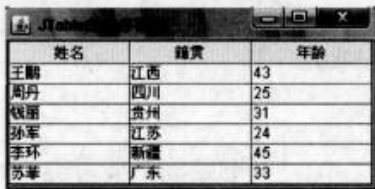 JTable
姓名 籍贯 年龄
王鹏 江西 43
周丹 四川 25
钱丽 贵州 31
孙军 江苏 24
李环 新疆 45
苏菲 广东 33